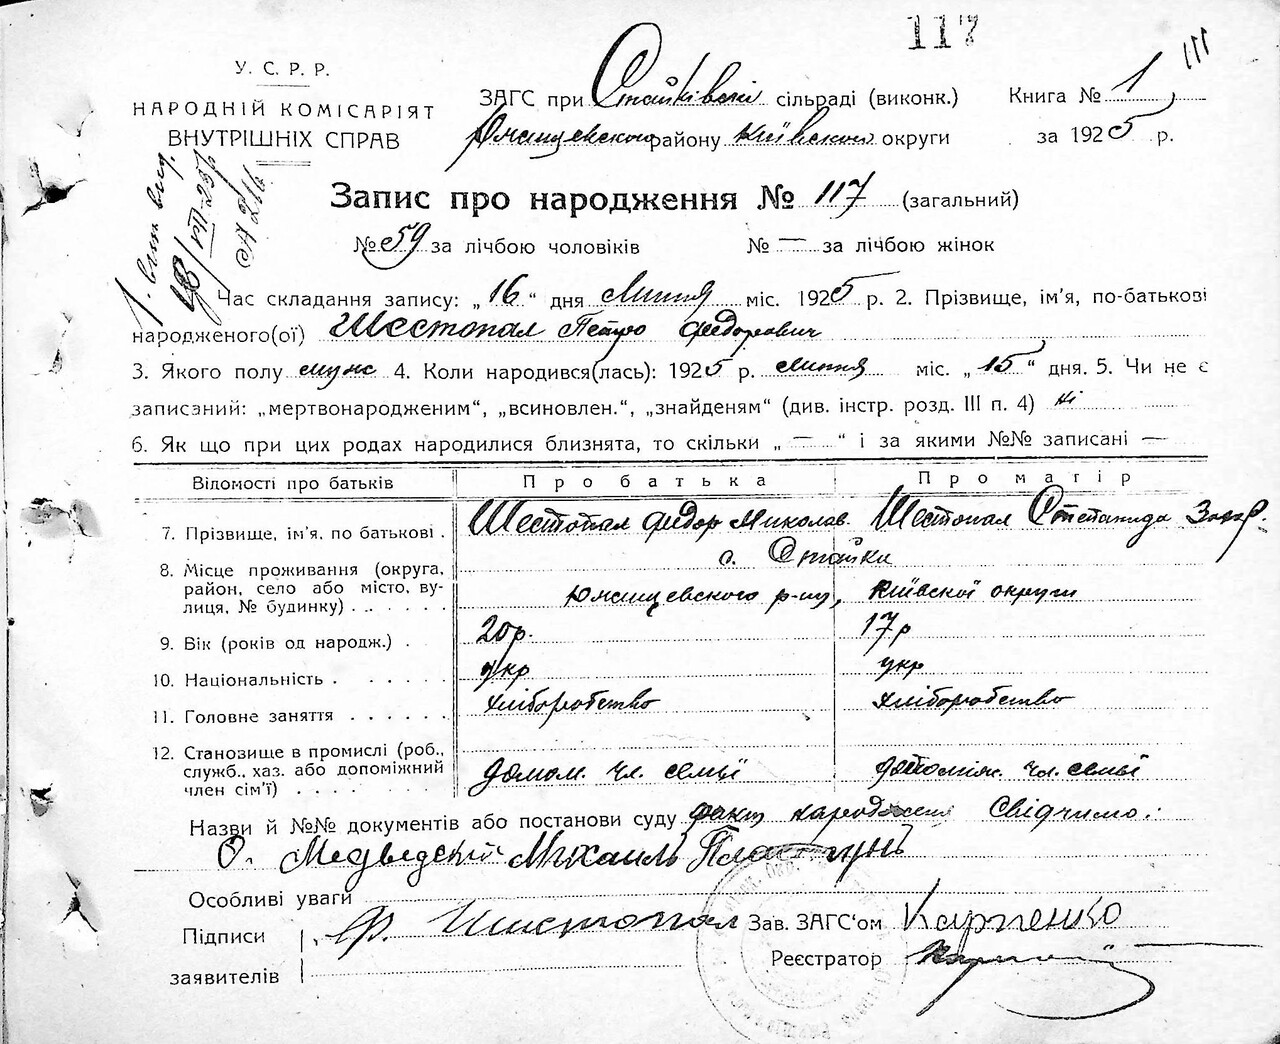 117
111
У. С. Р. Р.
НАРОДНІЙ КОМІСАРІЯТ
ВНУТРІШНІХ СПРАВ
ЗАГС при Стайківскі сільраді (виконк.)
Книга № 1
району Київскои округи
за 1925 р.
Запис про народження № 117 (загальний)
№ 59 за лічбою чоловіків № — за лічбою жінок
Час складання запису: „16“ дня Липня міс. 1925 р. 2. Прізвище, ім’я, по-батькові
народженого(ої) Шестопал Петро Федорович
3. Якого полу муж 4. Коли народився(лась): 1925 р. Липня міс. „15“ дня. 5. Чи не є
записаний: „мертвонародженим“, „всиновлен.“, „знайденям“ (див. інстр. розд. III п. 4) ні
6. Як що при цих родах народилися близнята, то скільки „—“ і за якими №№ записані —
Відомості про батьків Про батька Про матір
7. Прізвище, ім’я, по батькові . Шестопал Федор Николав. Шестопал Степанида Захар.
с. Стайки
8. Місце проживання (округа,
район, село або місто, ву-
лиця, № будинку) . . . . . Юнащевского р-ну, Київскої округи
9. Вік (років од народж.) . 20 р. 17 р
10. Національність . . . . . укр укр
11. Головне заняття . . . . . . хліборобство хліборобство
12. Становище в промислі (роб.,
служб., хаз. або допоміжний
член сім’ї) . . . . . . . . . чл. семьї чл. семьї
Назви й №№ документів або постанови суду факт народження Свідчимо:
О. Медведскій Михаилъ
Особливі уваги
Підписи
заявителів
Ф. Шистопал
Зав. ЗАГС‘ом Карпенко
Реєстратор